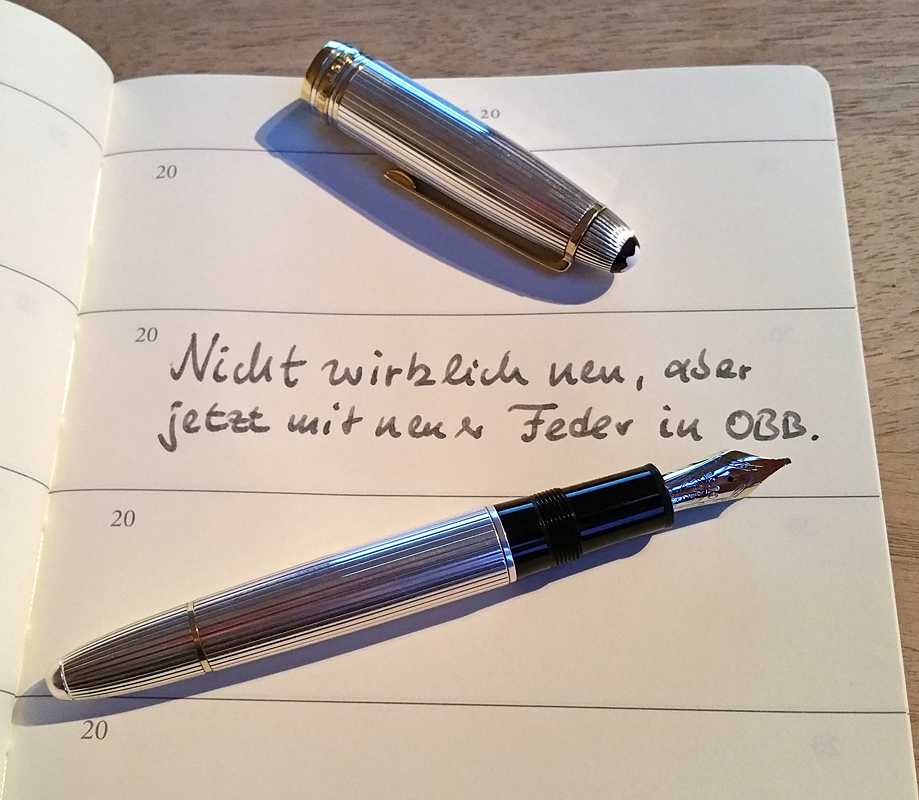 20
20
20
Nicht wirklich neu, aber
jetzt mit neuer Feder in OBB.
20
20